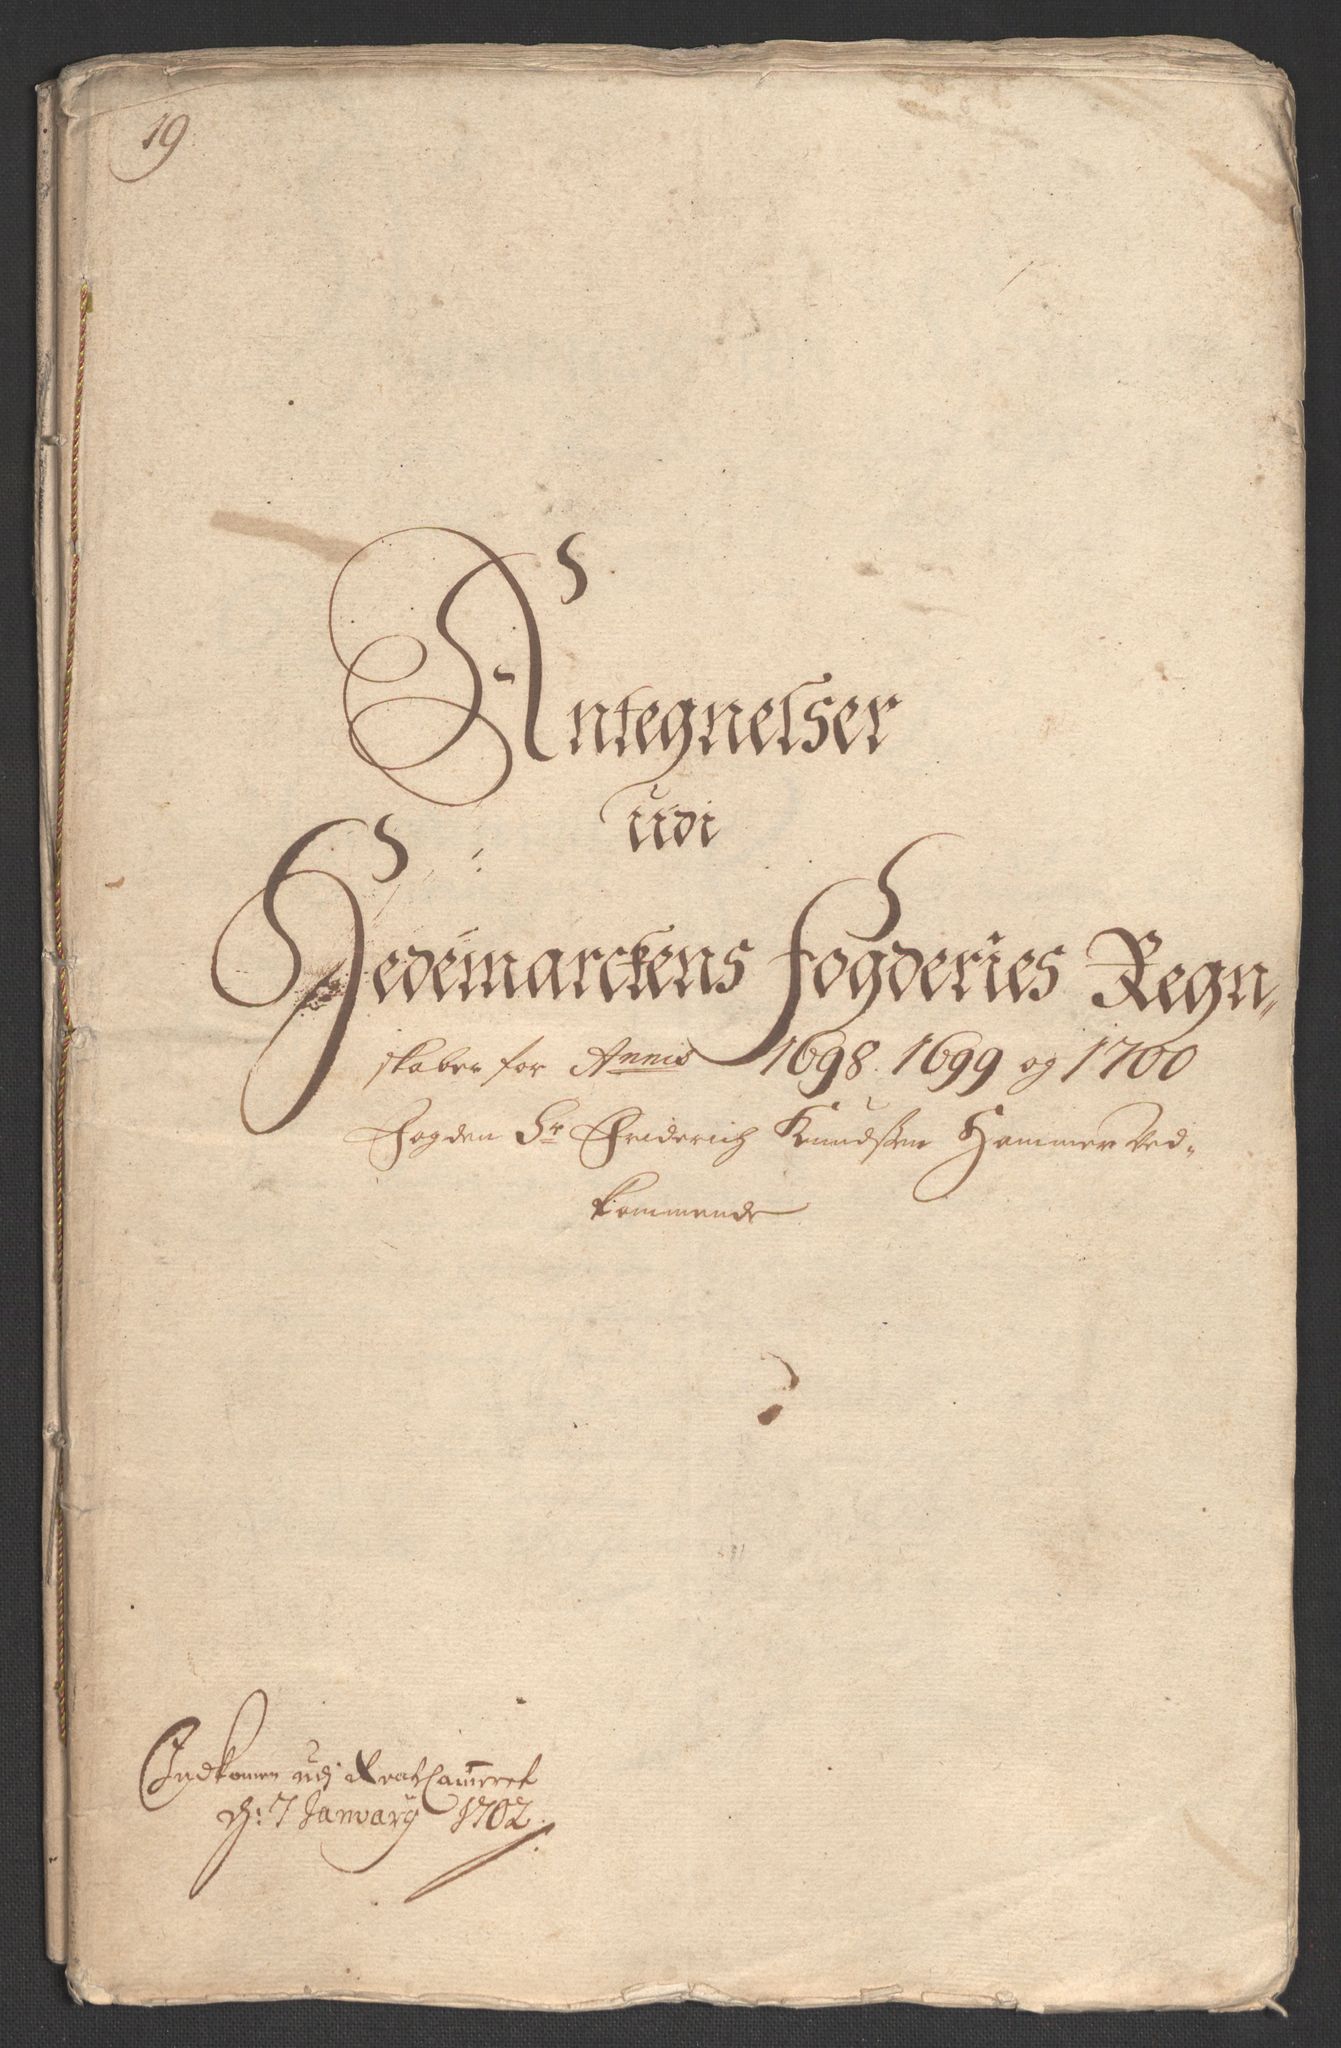 19
Antegnelser
udi
Hedemarckens fogderies Regn,,
skaber for Annis 1698. 1699 og 1700
Fogden Sr Friderich Knudssen Hammer Ved-
kommende
Indkomen udj RentCameret
d: 7 January 1702.